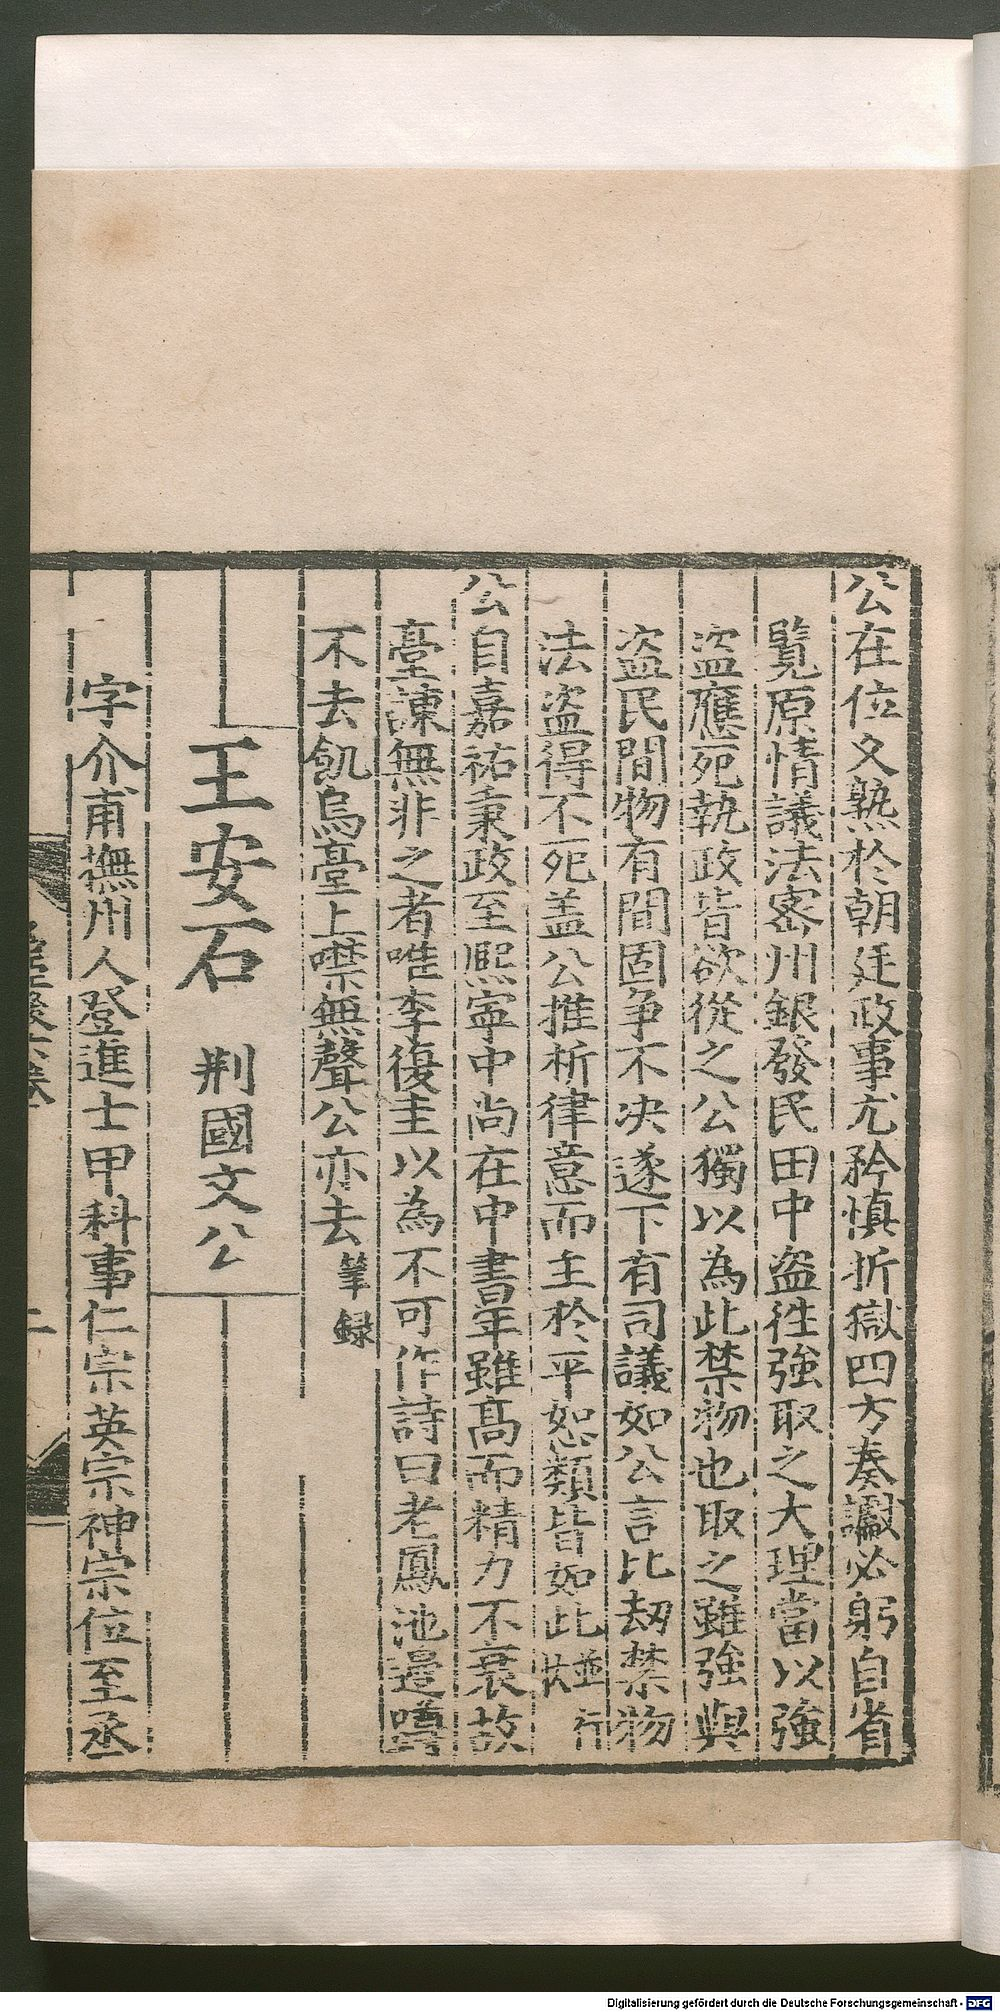 公在位久熟於朝廷政事尤矜慎折獄四方奏讞必躬自省
覽原情議法密州銀發民田中盗徃強取之大理當以強
盗應死執政皆欲從之公獨以為此禁物也取之雖強與
盗民間物有間固争不决遂下有司議如公言比刼禁物
法盗得不死盖公推析律意而主於平恕類皆如此並行狀
公自嘉祐秉政至熈寧中尚在中書年雖髙而精力不衰故
臺諫無非之者唯李復圭以為不可作詩曰老鳳池邉蹲
不去飢烏臺上噤無聲公亦去筆録
王安石 荆國文公
字介甫撫州人登進士甲科事仁宗英宗神宗位至丞
二
Digitalisierung gefördert durch die Deutsche Forschungsgemeinschaft - DFG